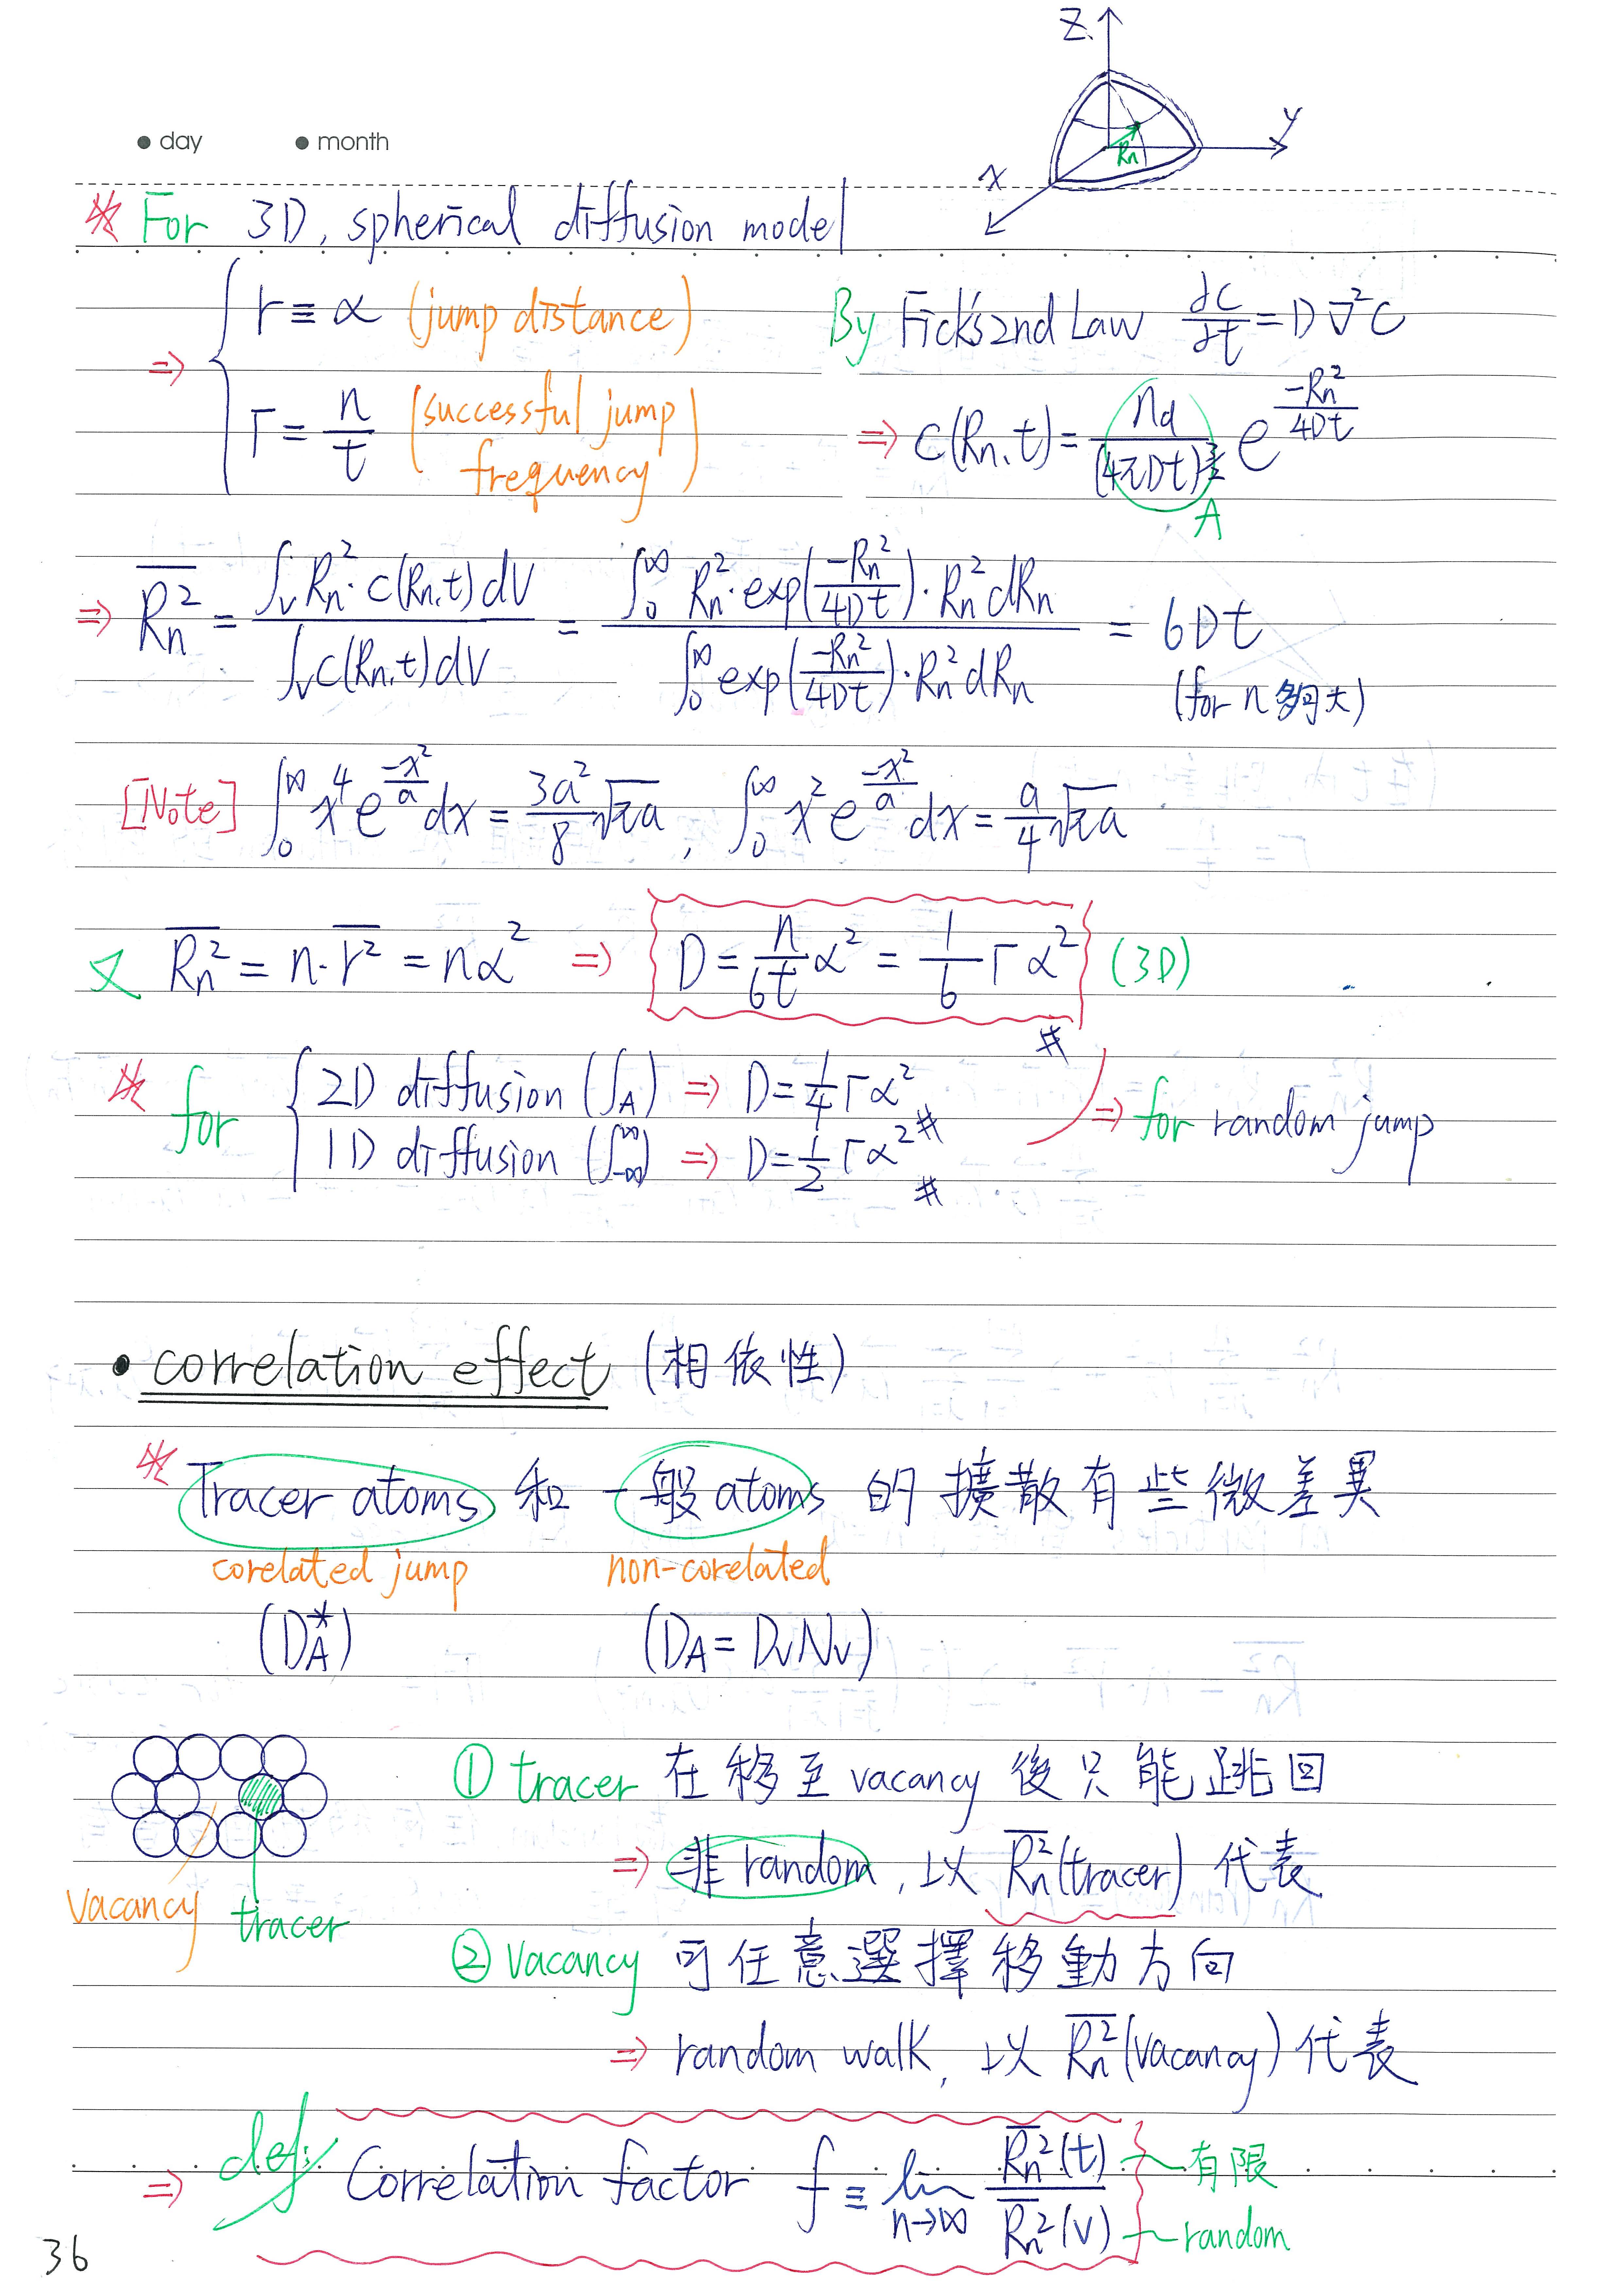 Z
y
x
Rn
● day ● month
※ For 3D, spherical diffusion model
⇒ { r ≡ α (jump distance)
Γ = n/t (successful jump frequency)
By Fick's 2nd Law ∂C/∂t = D∇²C
⇒ C(Rn,t) = nd/(4πDt)^(3/2) e^(-Rn²/4Dt)
A
⇒ \overline{Rn²} = ∫v Rn²·C(Rn,t)dV / ∫v C(Rn,t)dV = ∫0^∞ Rn²·exp(-Rn²/4Dt)·Rn²dRn / ∫0^∞ exp(-Rn²/4Dt)·Rn²dRn = 6Dt
(for n 夠大)
[Note] ∫0^∞ x⁴e^(-x²/a)dx = 3a²/8 √πa , ∫0^∞ x²e^(-x²/a)dx = a/4 √πa
又 \overline{Rn²} = n·\overline{r²} = nα² ⇒ D = n/6t α² = 1/6 Γα² (3D)
#
※ for { 2D diffusion (∫A) ⇒ D = 1/4 Γα² #
1D diffusion (∫-∞^∞) ⇒ D = 1/2 Γα² #
⇒ for random jump
• correlation effect (相依性)
※ Tracer atoms 和 一般 atoms 的擴散有些微差異
corelated jump non-corelated
(D*A) (DA = DvNv)
vacancy tracer
① tracer 在移至 vacancy 後只能跳回
⇒ 非 random, 以 \overline{Rn²}(tracer) 代表
② vacancy 可任意選擇移動方向
⇒ random walk, 以 \overline{Rn²}(vacancy) 代表
⇒ def: Correlation factor f ≡ lim n→∞ \overline{Rn²}(t) / \overline{Rn²}(v)
有限
random
36